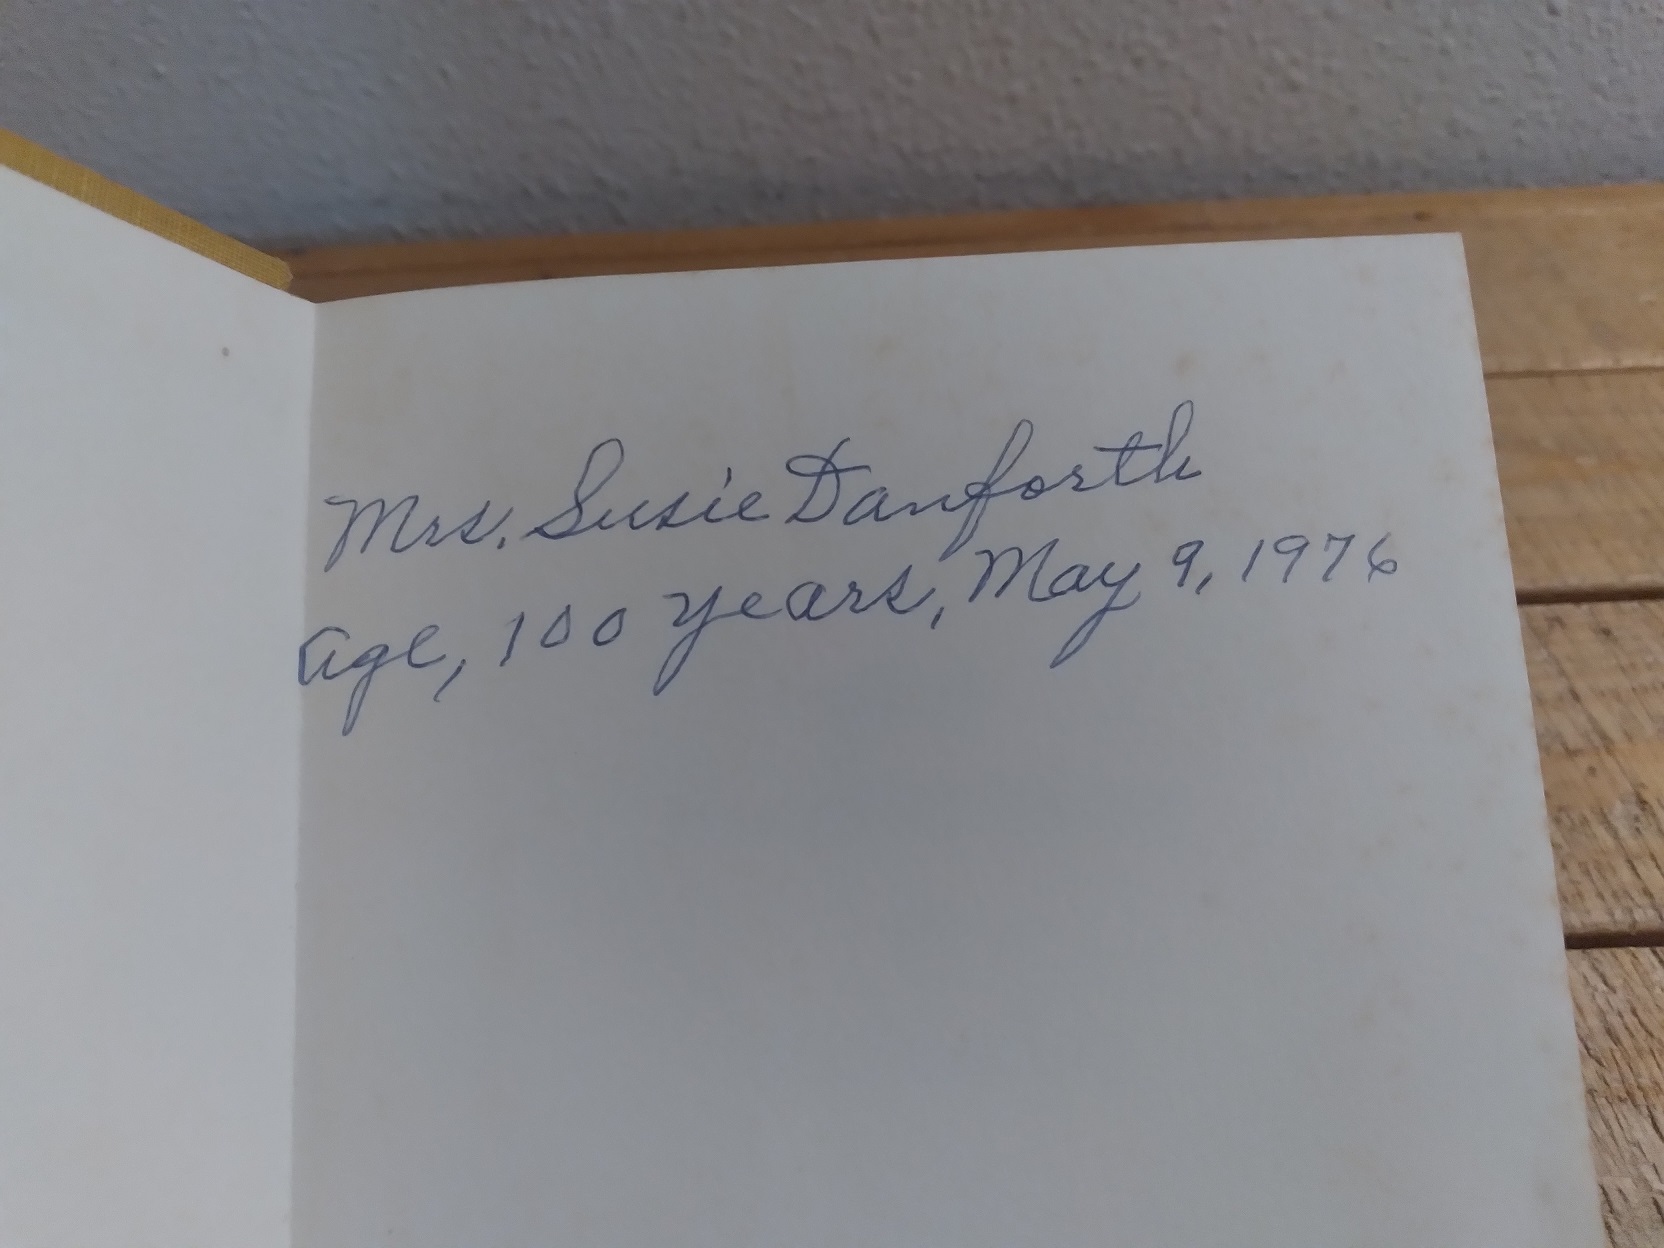 Mrs. Susie Danforth
age, 100 years, May 9, 1976